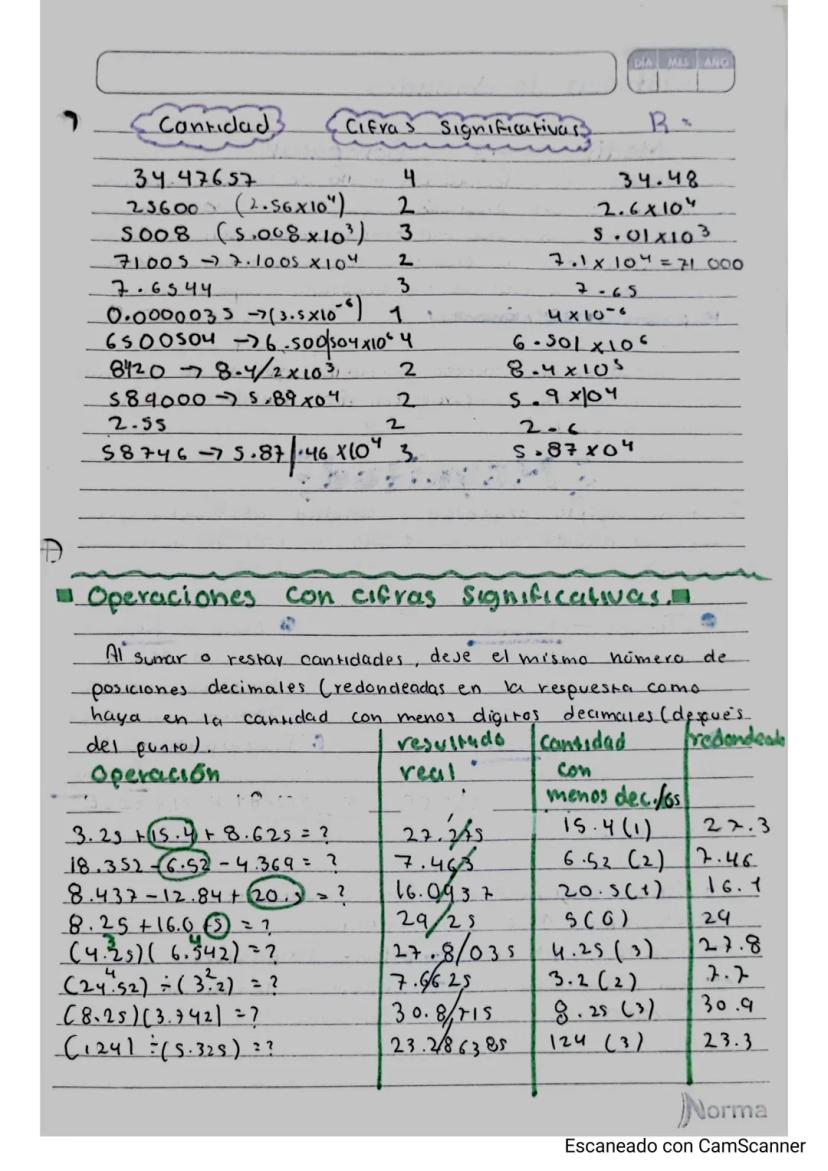 DÍA MES AÑO
Cantidad Cifras Significativas R=
34.47657 4 34.48
25600 (2.56x10⁴) 2 2.6x10⁴
5008 (5.008x10³) 3 5.01x10³
71005 → 7.1005 x10⁴ 2 7.1x10⁴ = 71 000
7.6544 3 7.65
0.0000035 → (3.5x10⁻⁶) 1 4x10⁻⁶
6500504 → 6.500|504x10⁶ 4 6.501x10⁶
8420 → 8.4/2x10³ 2 8.4x10³
589000 → 5.89x04 2 5.9x104
2.55 2 2.6
58746 → 5.87|.46 x10⁴ 3 5.87x04
Operaciones con cifras significativas.
Al sumar o restar cantidades, deje el mismo número de
posiciones decimales (redondeadas en la respuesta como
haya en la cantidad con menos dígitos decimales (después
del punto). resultado Cantidad redondeado
Operación real con
menos dec./os
3.25+15.4+8.625=? 27.275 15.4(1) 27.3
18.352-6.52-4.369=? 7.463 6.52 (2) 7.46
8.437-12.84+20.5=? 16.0937 20.5(1) 16.1
8.25+16.0+5=? 29/25 5(0) 29
(4.25)(6.542)=? 3 4 27.8/035 4.25 (3) 27.8
(24.52)÷(3.2)=? 4 2 7.6625 3.2(2) 7.7
(8.25)(3.742)=? 30.8/715 8.25 (3) 30.9
(124)÷(5.325)=? 23.286385 124 (3) 23.3
Norma
Escaneado con CamScanner